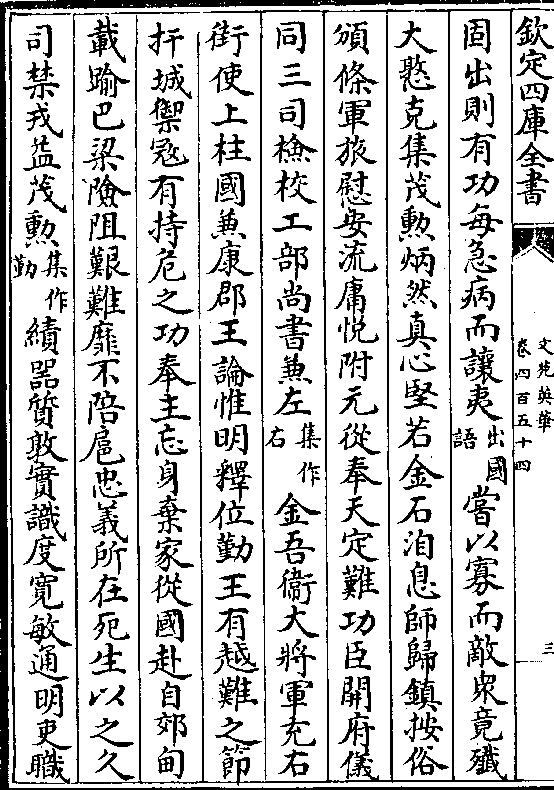 欽定四庫全書
文苑英華
卷四百五十四
三
固出則有功每急病而讓夷出國語嘗以寡而敵衆竟殲
大憝克集茂勲炳然真心堅若金石洎息師歸鎮按俗
頒條軍旅慰安流庸悅附元從奉天定難功臣開府儀
同三司檢校工部尚書兼左集作右金吾衞大將軍充右
街使上柱國兼康郡王論惟明釋位勤王有越難之節
扞城禦冦有持危之功奉主忘身棄家從國赴自郊甸
載踰巴梁險阻艱難靡不陪扈忠義所在死生以之久
司禁戎益茂勲集作勤績器質敦實識度寛敏通明吏職